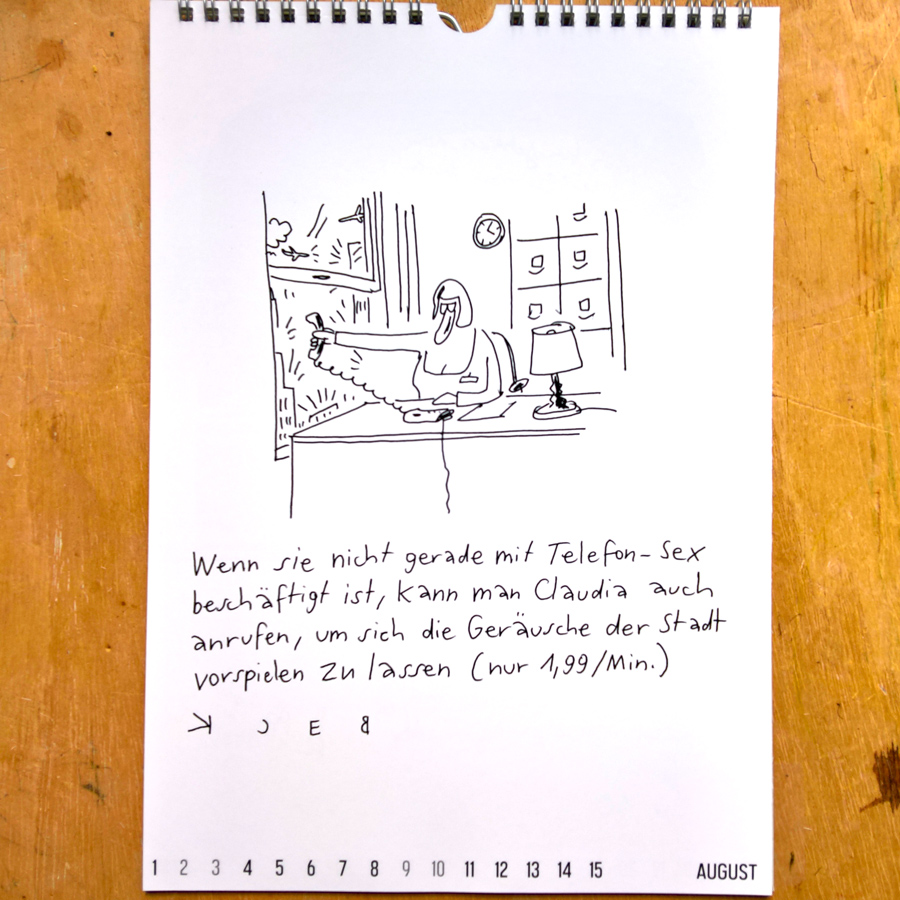 Wenn sie nicht gerade mit Telefon-Sex
beschäftigt ist, kann man Claudia auch
anrufen, um sich die Geräusche der Stadt
vorspielen zu lassen (nur 1,99/Min.)
1 2 3 4 5 6 7 8 9 10 11 12 13 14 15 AUGUST